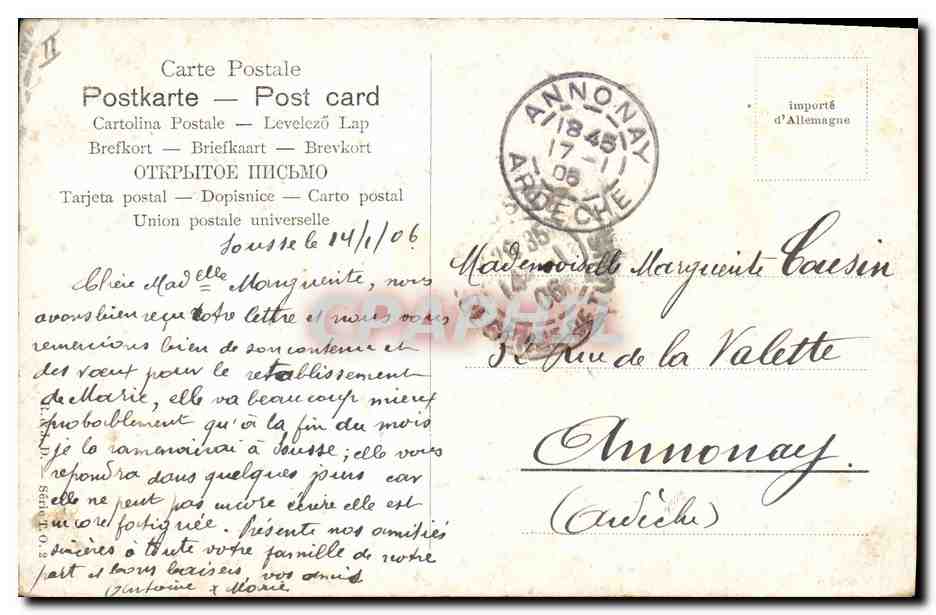 II
Carte Postale
Postkarte — Post card
Cartolina Postale — Levelező Lap
Brefkort — Briefkaart — Brevkort
ОТКРЫТОЕ ПИСЬМО
Tarjeta postal — Dopisnice — Carto postal
Union postale universelle
importé
d'Allemagne
ANNONAY
18 45
17 - 1
06
ARDECHE
35
14 - 1
06
TUNISIE
CPAPHIL
Sousse le 14/1/06
Chère Madelle Marguerite, nous
avons bien reçu votre lettre et nous vous
remercions bien de son contenu et
des vœux pour le retablissement
de Marie, elle va beaucoup mieux
probablement qu'à la fin du mois
je la ramenerai à Sousse; elle vous
repondra dans quelques jours car
elle ne peut pas encore écrire elle est
encore fatiguée. Présente nos amitiés
sincères à toute votre famille de notre
part et bons baisers, vos amis
Antoine x Marie
Mademoiselle Marguerite Cousin
32 rue de la Valette
Annonay.
(Ardèche)
Série T. O. 2